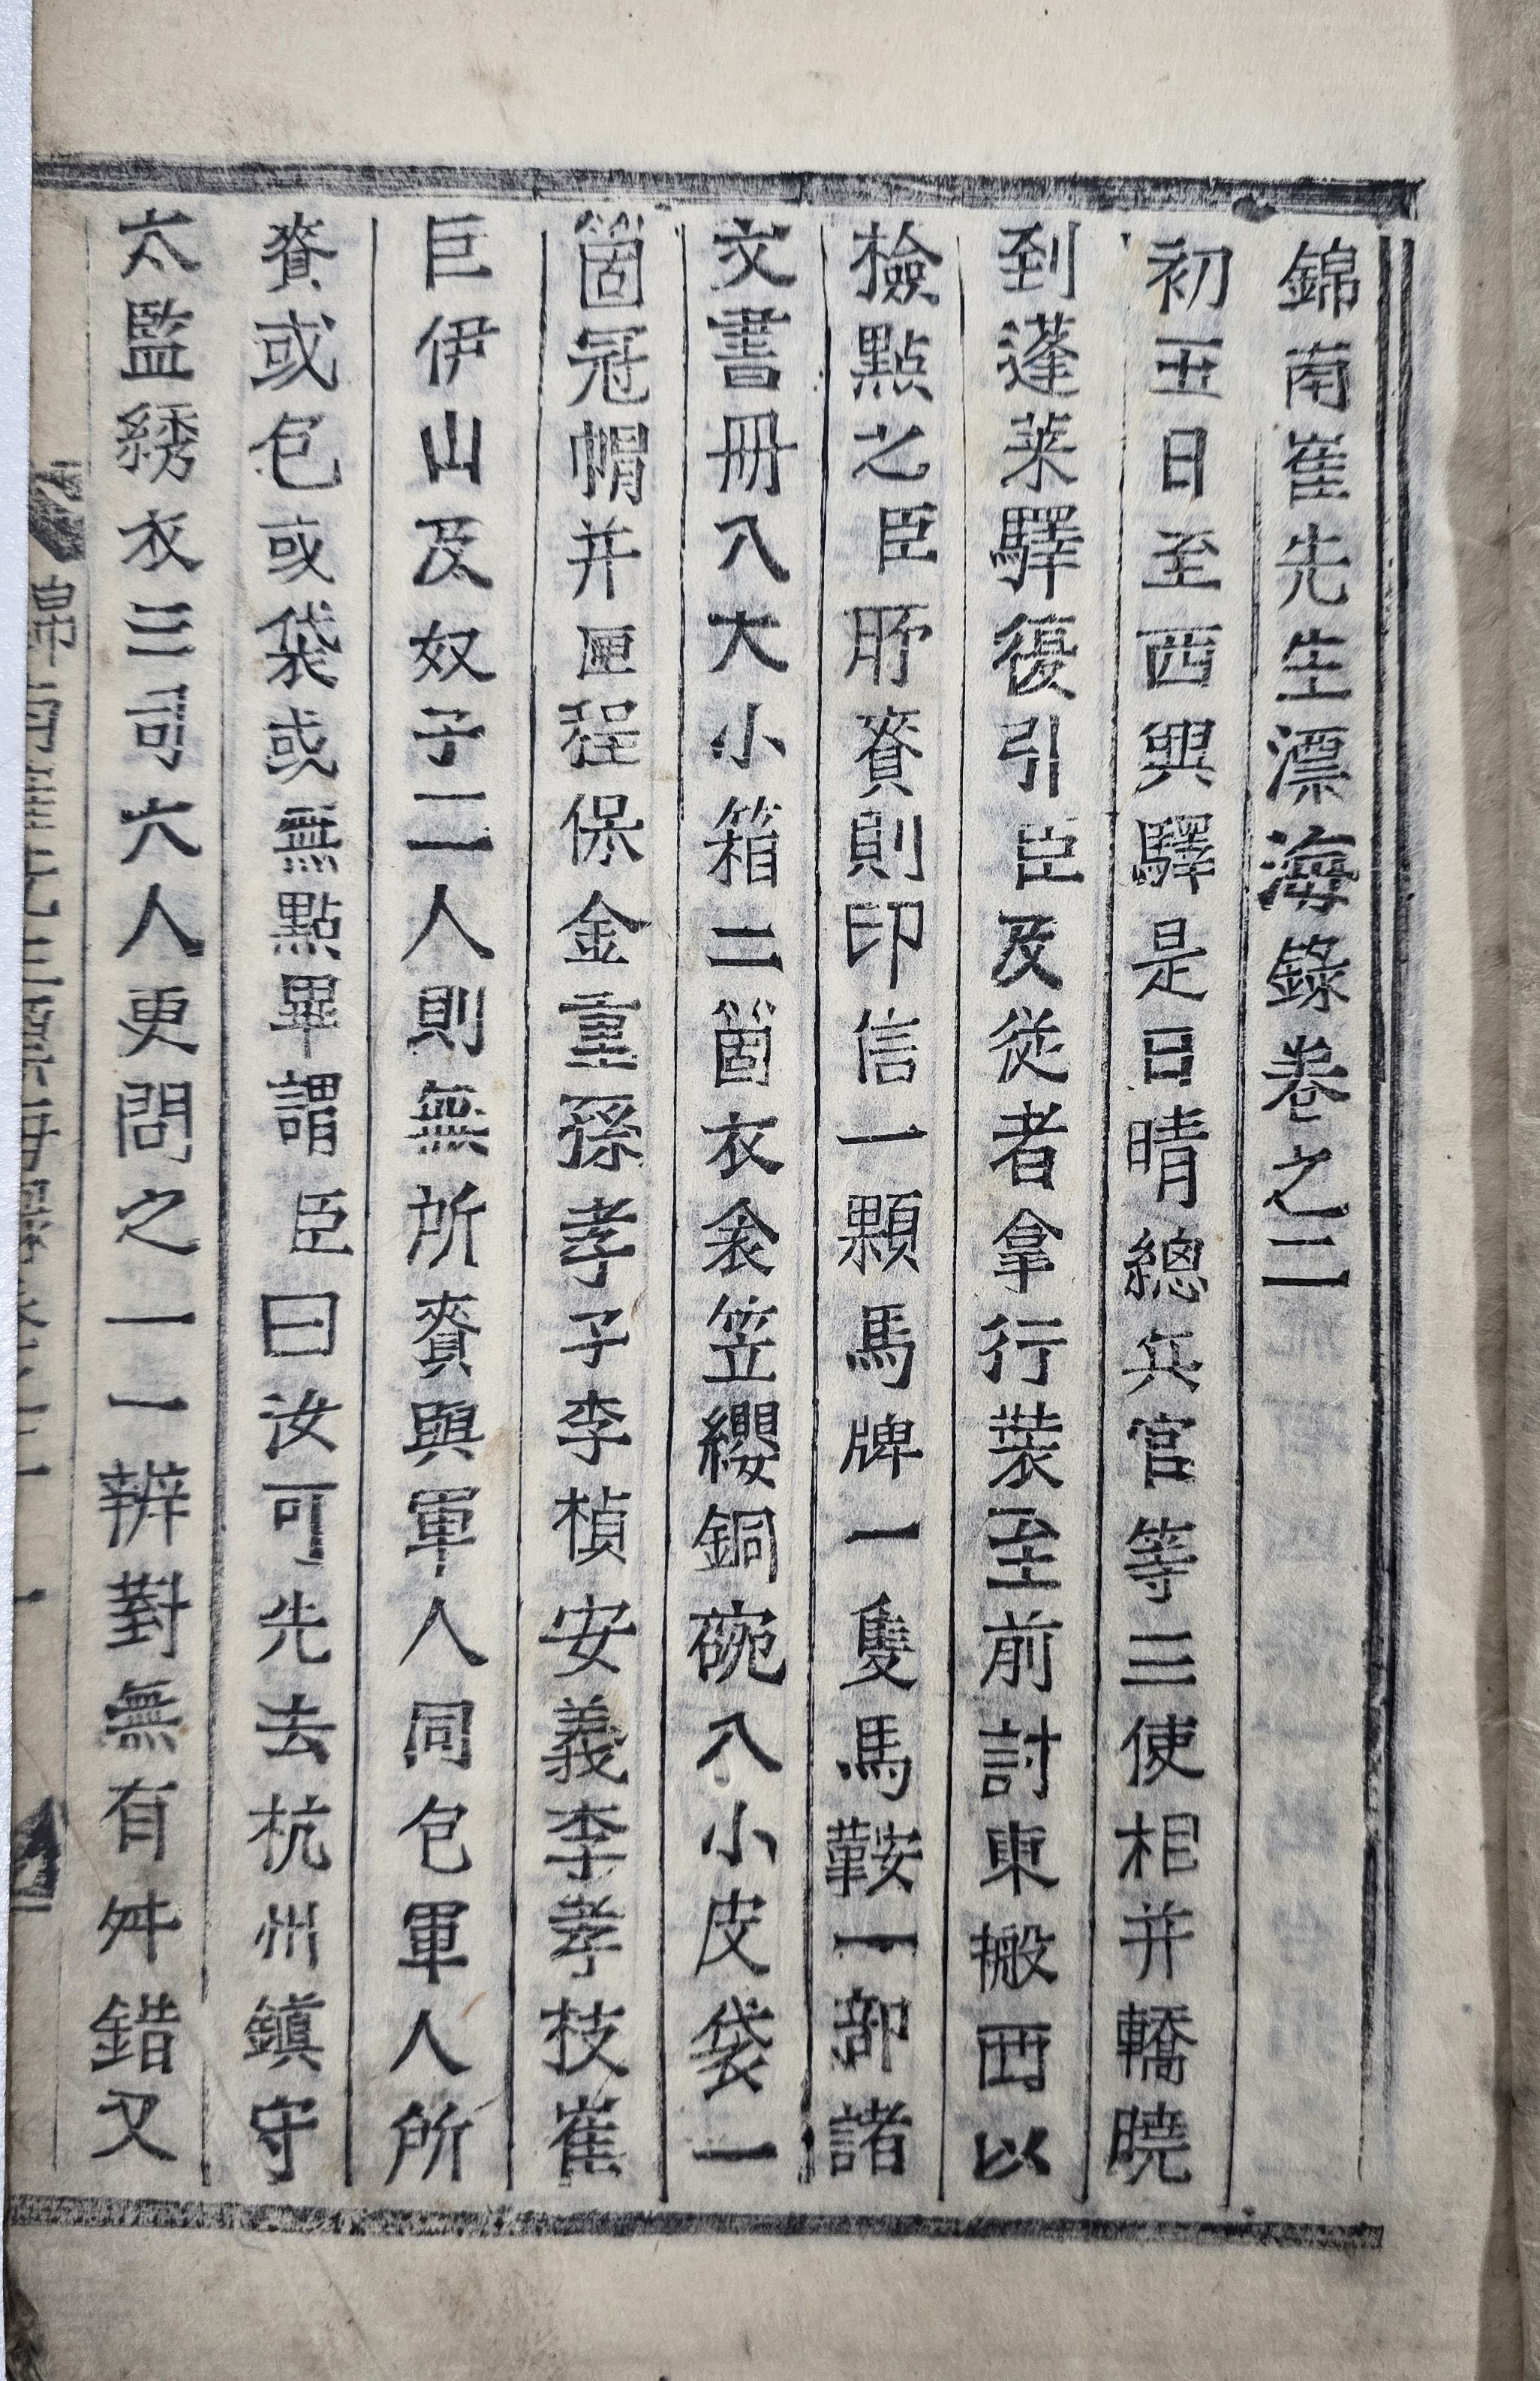 錦南崔先生漂海錄卷之二
初五日至西興驛是日晴總兵官等三使相并轎曉
到蓬萊驛復引臣及從者拿行裝至前討東搬西以
檢點之臣所賫則印信一顆馬牌一隻馬鞍一部諸
文書冊入大小箱二箇衣衾笠纓銅碗入小皮袋一
箇冠帽并匣程保金重孫孝子李楨安義李孝枝崔
巨伊山及奴子二人則無所賫與軍人同包軍人所
賫或包或袋或無點畢謂臣曰汝可先去杭州鎮守
太監綉衣三司大人更問之一一辨對無有舛錯又